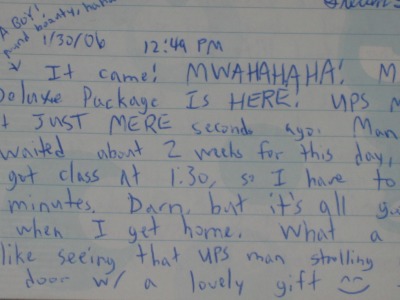 A BOY!
pound beauty, haha
1/30/06 12:49 PM
It came! MWAHAHAHA! M
Deluxe Package IS HERE! UPS M
JUST MERE seconds ago. Man
waited about 2 weeks for this day,
got class at 1:30, so I have to
minutes. Darn, but it's all go
when I get home. What a
like seeing that UPS man strolling
door w/ a lovely gift